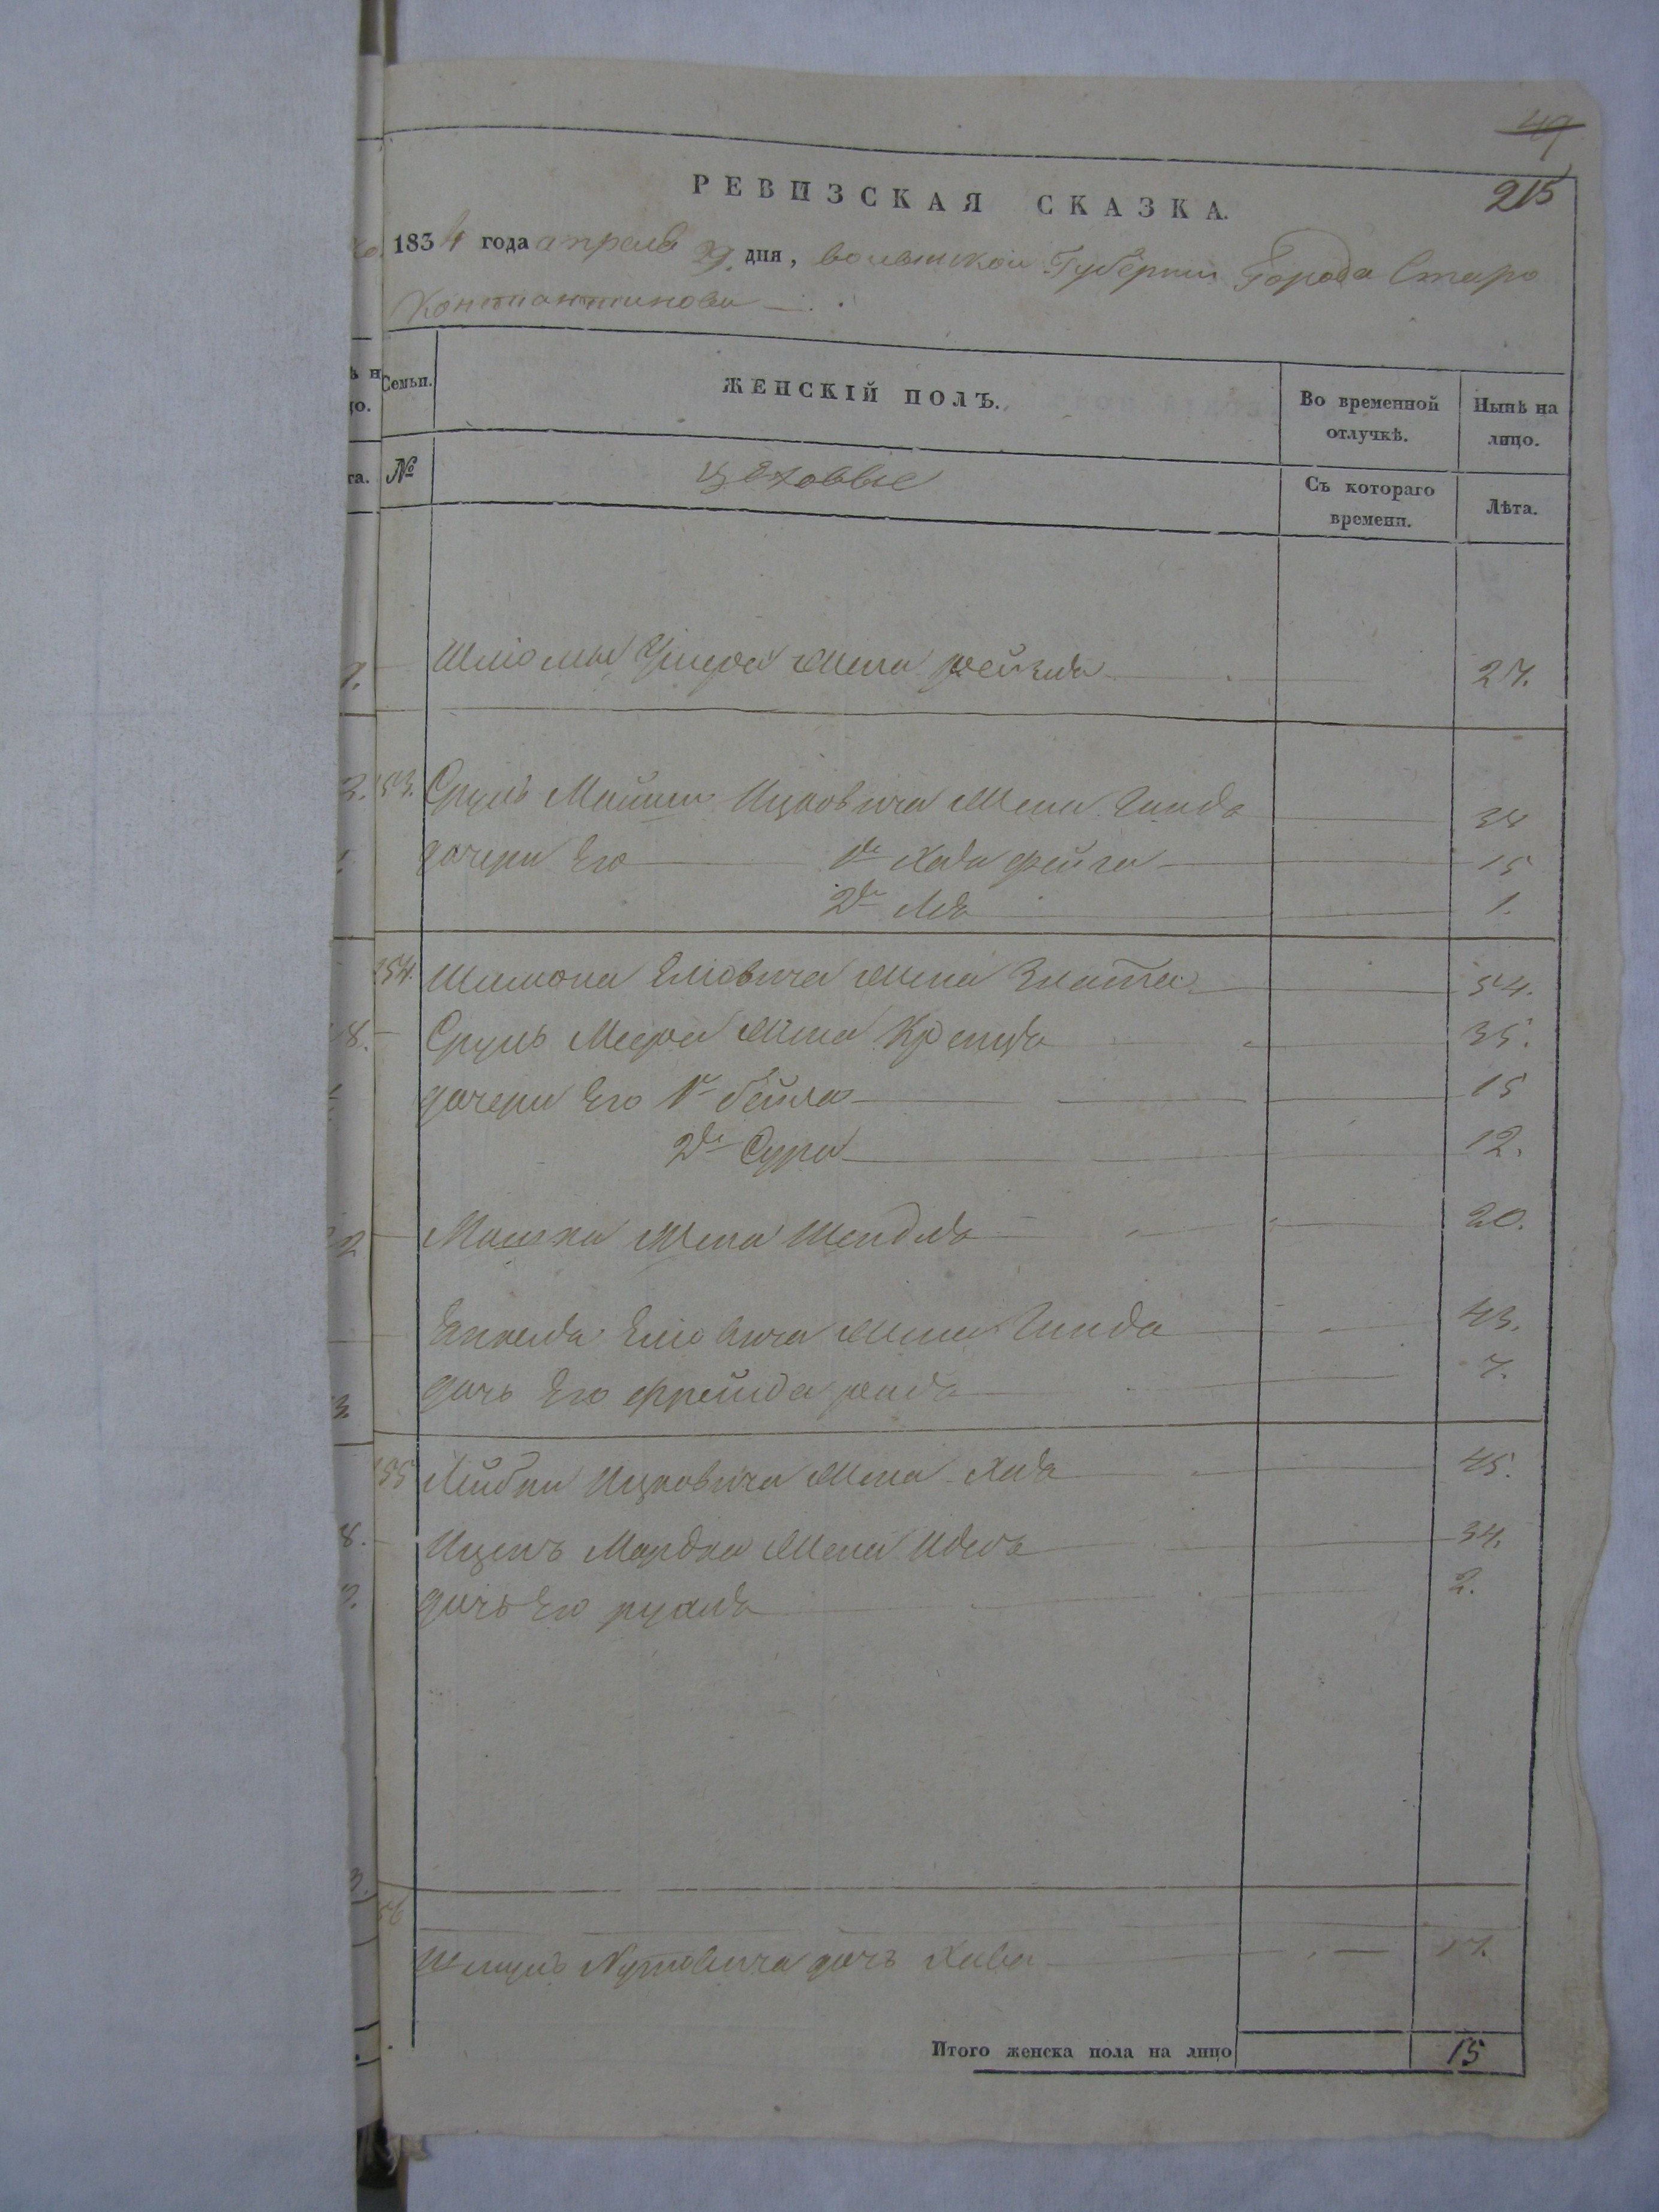 49
215
РЕВИЗСКАЯ СКАЗКА.
1834 года апреля дня, волынской Губернии Города Старо
Константинова
Семьи. ЖЕНСКІЙ ПОЛЪ. Во временной отлучкѣ. Нынѣ на лицо.
№ цеховые Съ котораго времени. Лѣта.
Шліомы Жена 27.
153. Сруль Ицковича Жена Гинда 34
дочери Его 1я Хая фейга 15
2я Лея 1.
154. Шимона Еліовича Жена Злота 54.
Сруль Меера Жена Креица 35.
дочери Его 1я бейла 15
2я Сура 12.
Мошка Жена Шендля 20.
Еліовича Жена Гинда 43.
дочь Его фрейда 7.
155 Лейбки Ицковича Жена Хая 45.
Ицекъ Мордка Жена 34.
дочь Его рухля 2.
56
Шмуль дочь Хава 17.
Итого женска пола на лицо 15